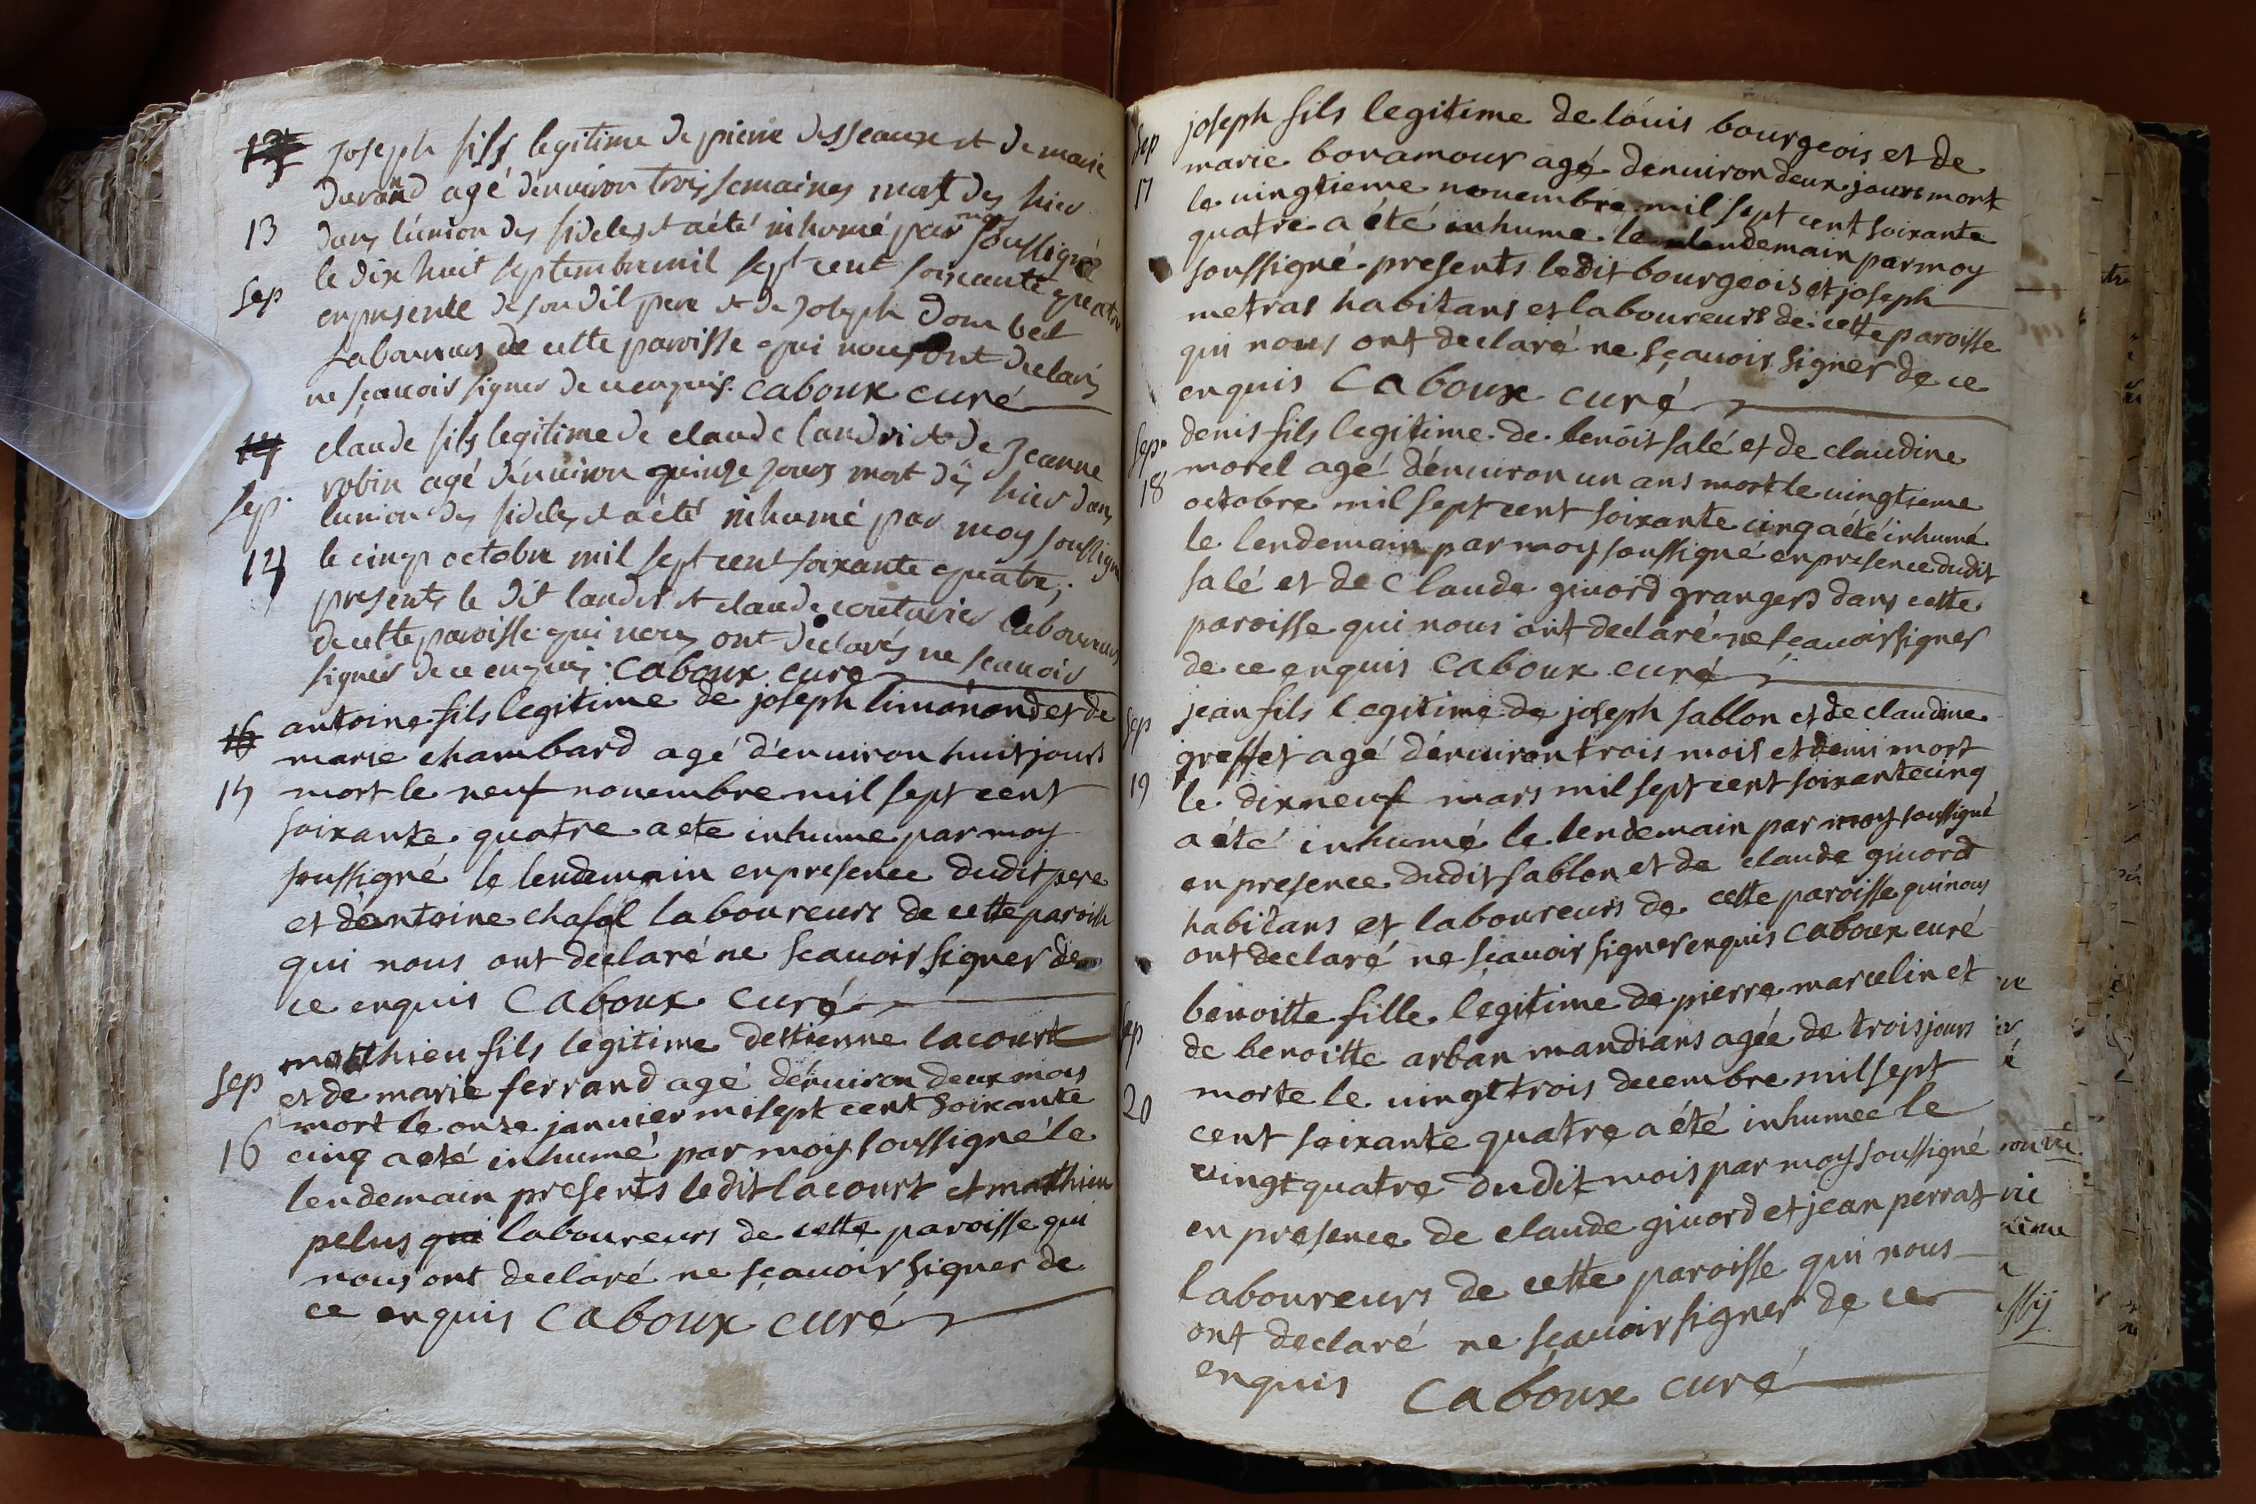 joseph fils legitime de pierre desseaux et de marie
durand agé d'environ trois semaines mort des hier
13 dans l'union des fideles et a été inhumé par moy soussigné
le dix huit septembre mil sept cent soixante quatre
Sep en presence de son dit pere et de joseph dombel
Laboureurs de cette paroisse qui nous ont declarés
ne sçauoir signer de ce enquis. caboux curé
14 claude fils legitime de claude landri et de jeanne
robin agé d'enuiron quinze jours mort des hier dans
Sep. lunion des fideles et a été inhumé par moy soussigné
14 le cinq octobre mil sept cent soixante quatre,
presents le dit landri et claude couturier laboureurs
de cette paroisse qui nous ont declarés ne scauoir
signer de ce enquis. caboux curé
antoine fils legitime de joseph limonond et de
16 marie chambard agé d'enuiron huit jours
15 mort le neuf nouembre mil sept cent
soixante quatre a ete inhume par moy
soussigné le lendemain en presence dudit pere
et d'antoine chasal laboureurs de cette paroisse
qui nous ont declaré ne scauoir signer de
ce enquis caboux curé
matthieu fils legitime d'etienne lacourt
Sep et de marie ferrand agé d'enuiron deux mois
mort le onze januier mil sept cent soixante
16 cinq a eté inhumé par moy soussigné le
lendemain presents ledit lacourt et mathieu
pelus qui laboureurs de cette paroisse qui
nous ont declaré ne sçauoir signer de
ce enquis caboux curé
Sep joseph fils legitime de louis bourgeois et de
marie boramour agé denuiron deux jours mort
17 le uingtieme nouembre mil sept cent soixante
quatre a été inhume le lendemain par moy
soussigné presents ledit bourgeois et joseph
metras habitans et laboureurs de cette paroisse
qui nous ont declaré ne sçauoir signer de ce
enquis caboux curé
Sep. denis fils legitime de benoit salé et de claudine
morel agé d'enuiron un ans mort le uingtieme
18 octobre mil sept cent soixante cinq a été inhumé
le lendemain par moy soussigné en presence dudit
salé et de claude giuord grangers dans cette
paroisse qui nous ont declaré ne sçauoir signer
de ce enquis caboux curé
Sep jean fils legitime de joseph sablon et de claudine
greffet agé d'enuiron trois mois et demi mort
19 le dixneuf mars mil sept cent soixante cinq
a été inhumé le lendemain par moy soussigné
en presence dudit sablon et de claude giuord
habitans et laboureurs de cette paroisse qui nous
ont declaré ne sçauoir signer enquis caboux curé
benoitte fille legitime de pierre marcelin et
Sep de benoitte arban mandians agée de trois jours
morte le uingt trois decembre mil sept
20 cent soixante quatre a été inhumee le
uingt quatre dudit mois par moy soussigné
en presence de claude giuord et jean perrat
laboureurs de cette paroisse qui nous
ont declaré ne sçauoir signer de ce
enquis caboux curé